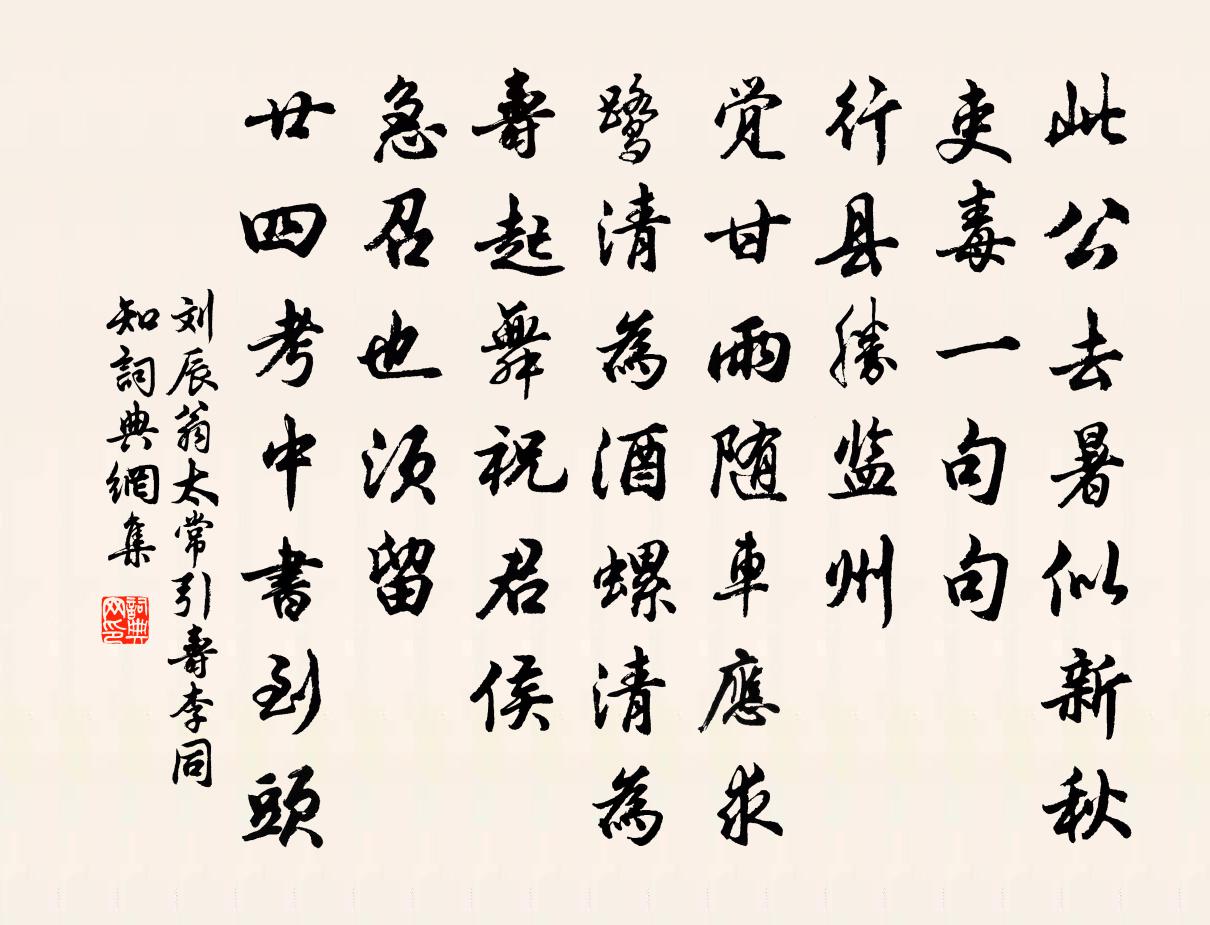 此公去暑似新秋
吏毒一句句
行县勝监州
觉甘雨随車應求
鹭清為酒螺清為
壽起舞祝君侯
急召也须留
廿四考中書到頭
刘辰翁太常引壽李同
知詞典網集
詞典网印